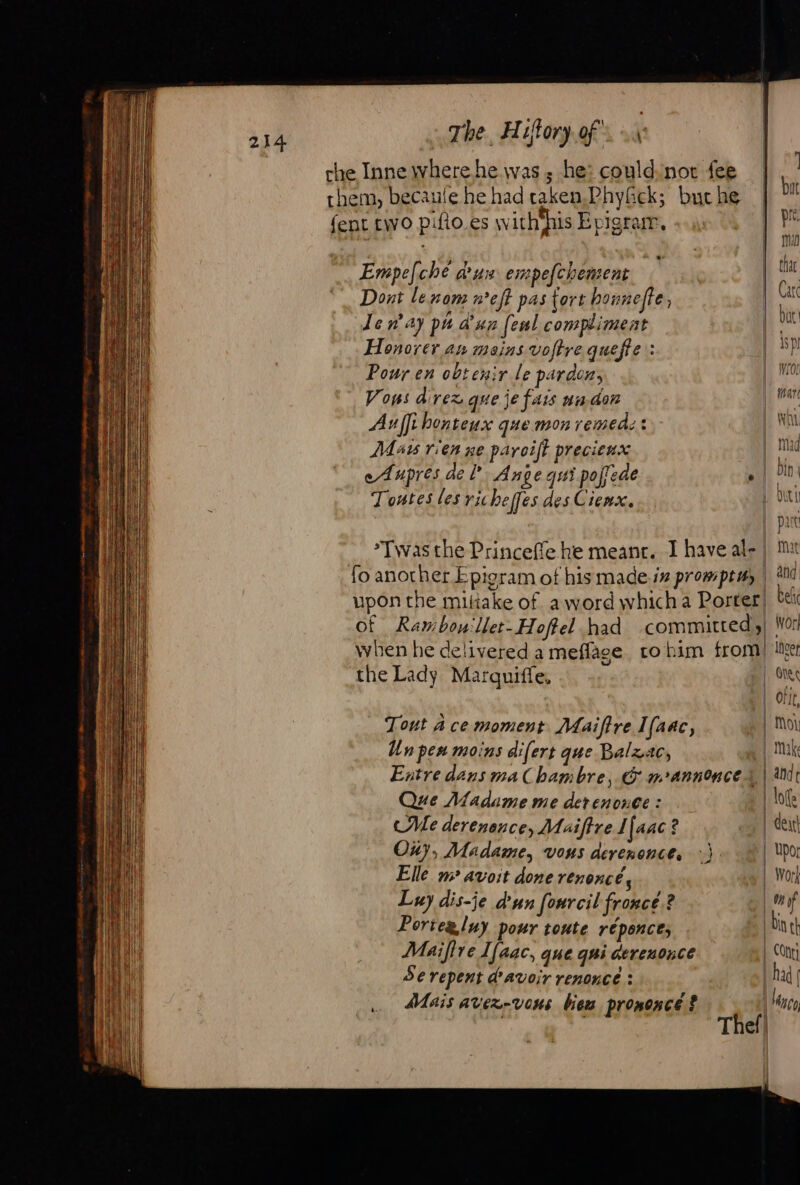 214
The Hiſtory of
the Inne where he was; he could not ſee
them, becauſe he had taken Phyſick; but he
ſent two piſto.es with his Epigram.
Empeſché d'un empeſchement
Dont le nom n'eſt pas fort honneſte,
Je n'ay pû d'un ſeul compliment
Honorer au moins voſtre queſte :
Pour en obtenir le pardon,
Vous direz que je fais un don
Auſſi honteux que mon remede:
Mais rien ne paroiſt precieux
Aupres de l' Ange qui poſſede
Toutes les richeſſes des Cieux.
'Twas the Princeſſe he meant. I have al-
ſo another Epigram of his made in promptu,
upon the miſtake of a word which a Porter
of Rambouillet-Hoſtel had committed,
when he delivered a meſſage to him from
the Lady Marquiſſe.
Tout à ce moment Maiſtre Iſaac,
Un peu moins diſert que Balzac,
Entre dans ma Chambre, & m'annonce
Que Madame me derenonce :
Me derenonce, Maiſtre Iſaac ?
Oüy, Madame, vous derenonce,
Elle m' avoit done renoncé,
Luy dis-je d'un ſourcil froncé ?
Portez luy pour toute réponce,
Maiſtre Iſaac, que qui derenonce
Se repent d'avoir renoncé :
Mais avez-vous bien prononcé ?
Theſ